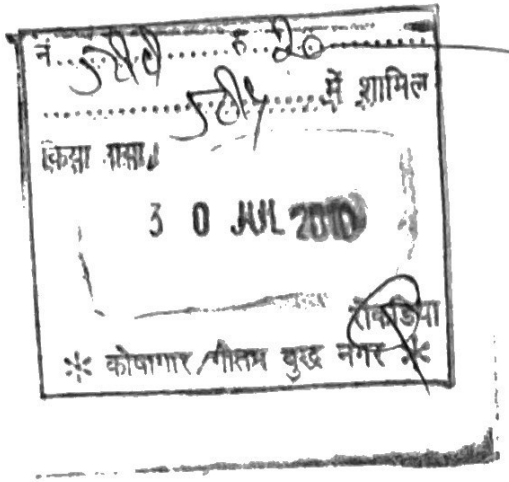 नं................रु..20............
.........................में शामिल
किया गया।
3 0 JUL 2010
रोकड़िया
* कोषागार, गौतम बुद्ध नगर *